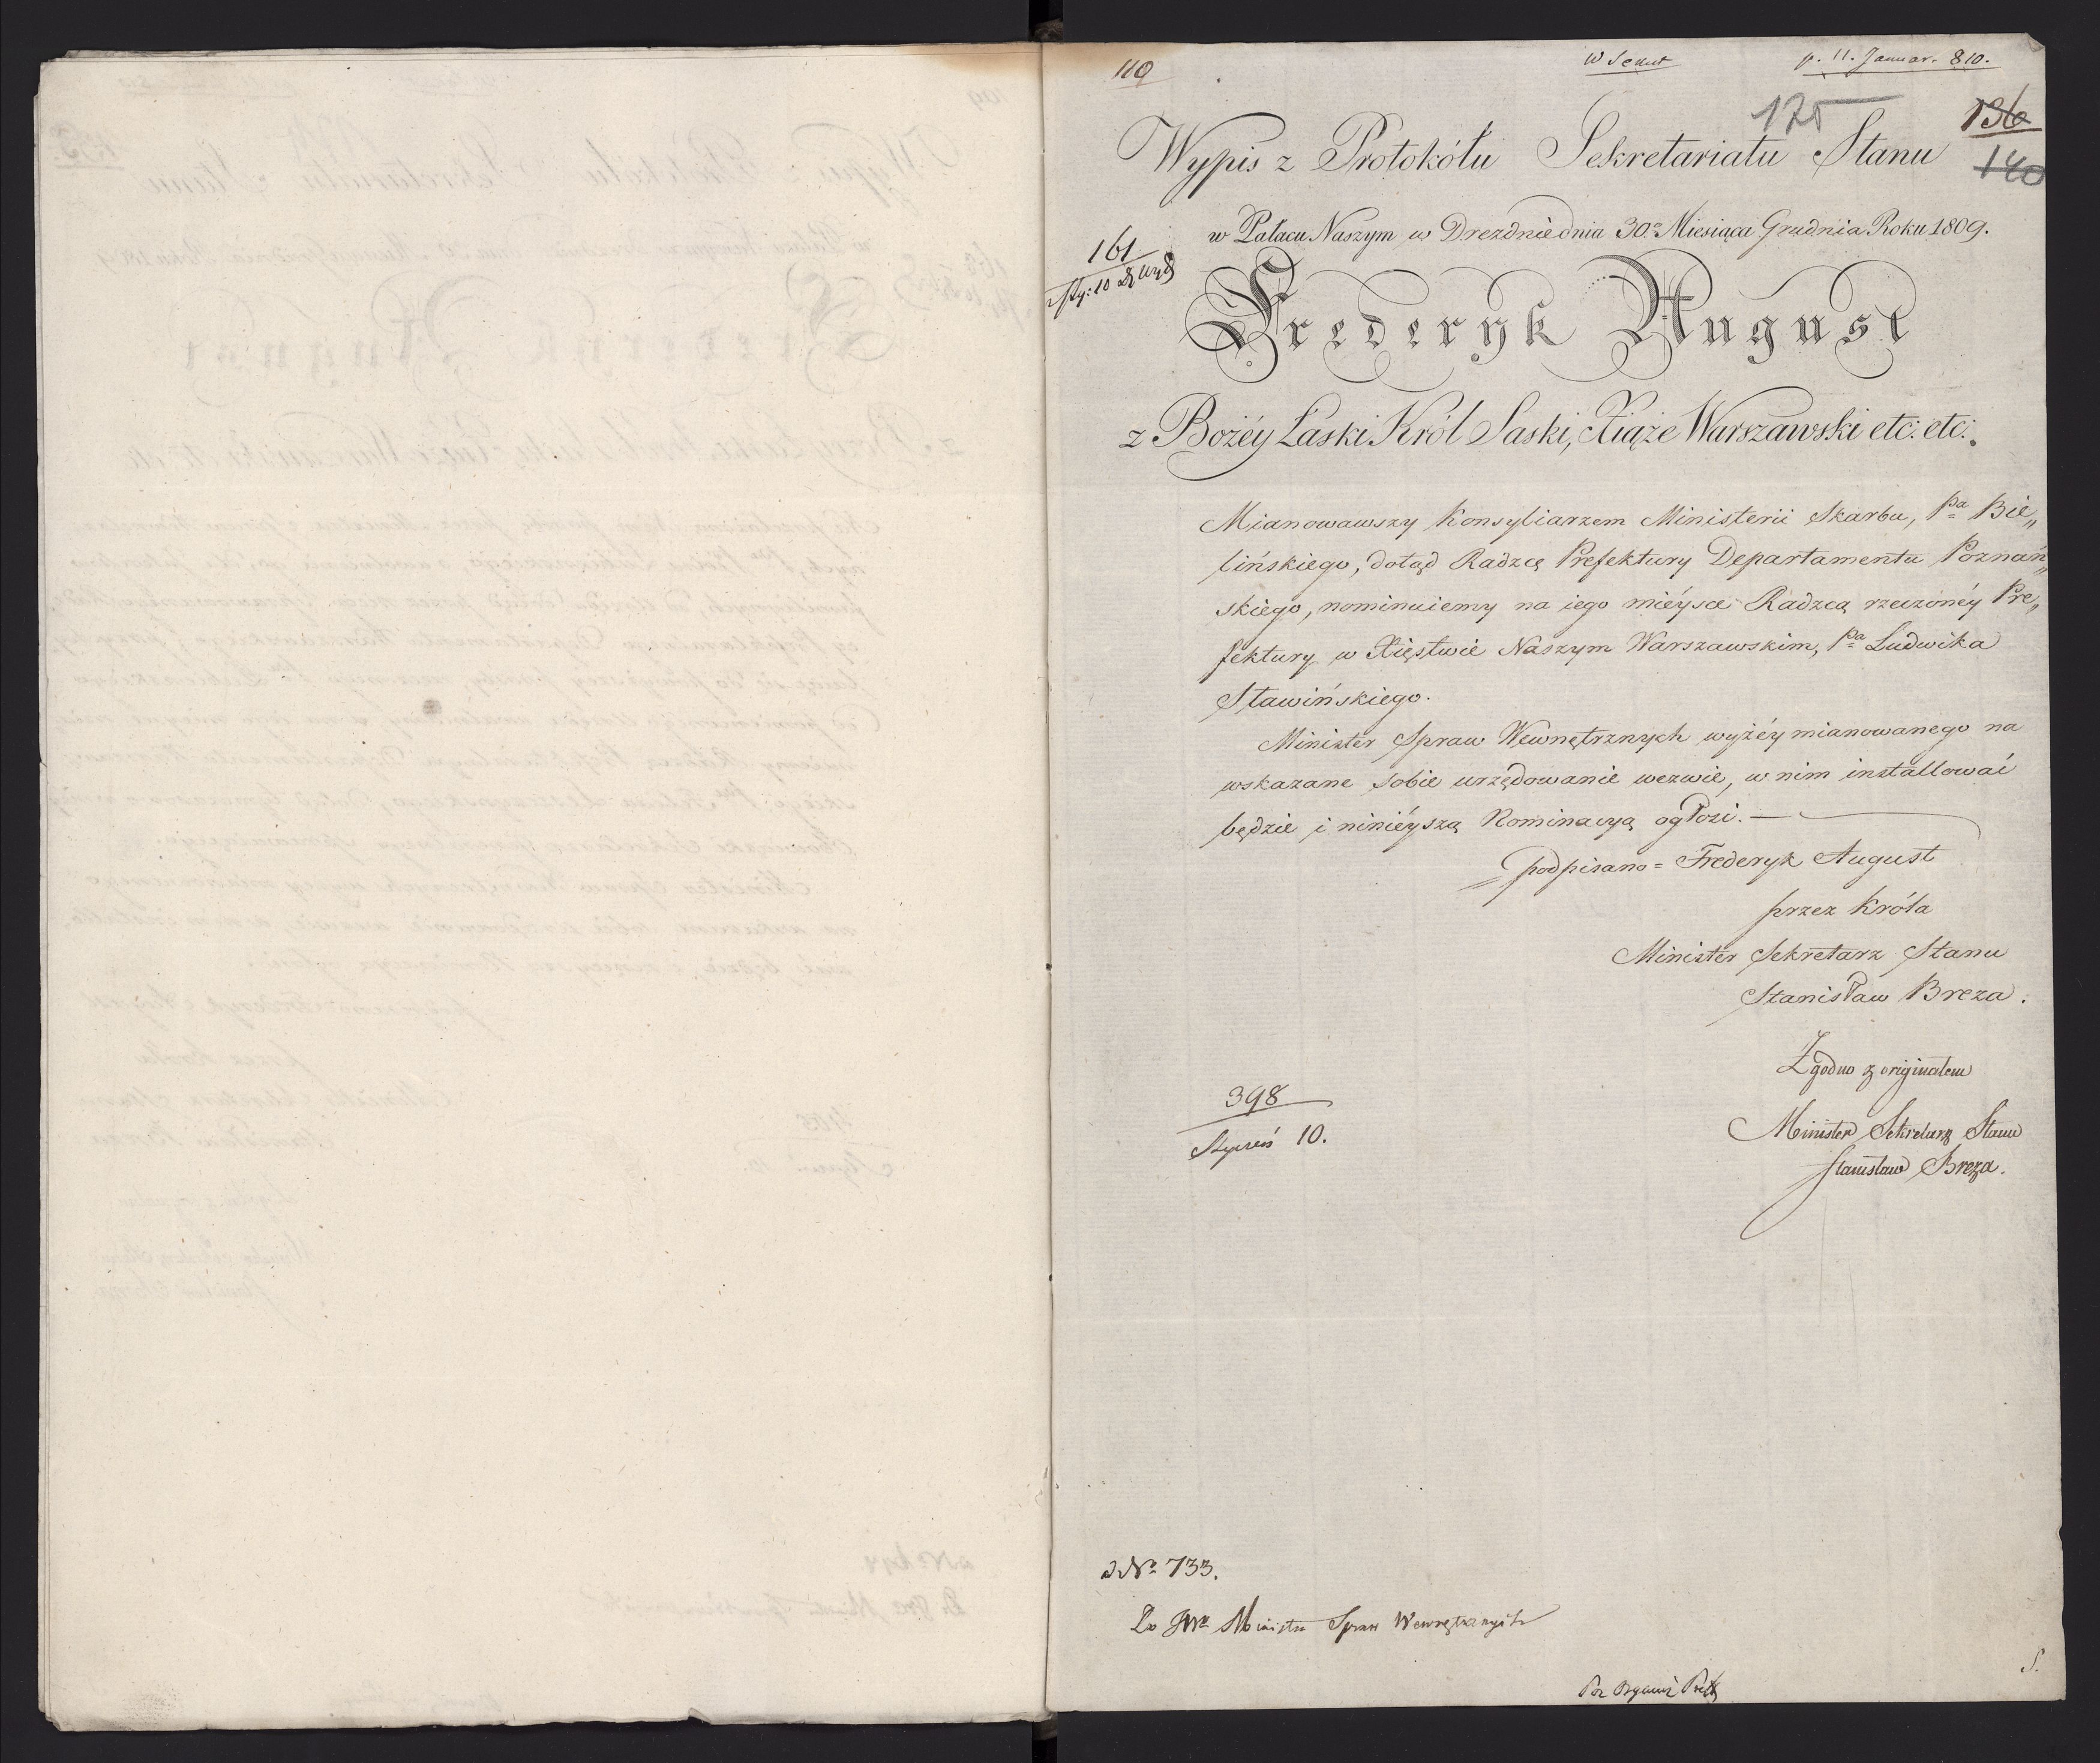 110
p. 11. Januar. 810.
175
136
140
Wypis z Protokółu Sekretariatu Stanu
w Pałacu Naszym w Dreznie dnia 30.º Miesiąca Grudnia Roku 1809.
161
Fryderyk August
z Bożéy Łaski Król Saski, Xiąże Warszawski etc: etc:.
Mianowawszy Konsyliarzem Ministerii Skarbu, Pa Bie„
lińskiego, dotąd Radzcę Prefektury Departamentu Poznań„
skiego, nominuiemy na iego miéysce Radzcą rzeczonéy Pre„
fektury w Xięstwie Naszym Warszawskim, Pa Ludwika
Sławińskiego.
Minister Spraw Wewnętrznych wyżéy mianowanego na
wskazane sobie urzędowanie wezwie, w nim installować
będzie i ninieyszą Nominacyą ogłosi. —
podpisano = Frederyk August
przez Króla
Minister Sekretarz Stanu
Stanisław Breza.
Zgodno z originałem
398
Styczeń 10.
Minister Sekretarz Stanu
Stanisław Breza.
No 733.
Do JWo Ministra Spraw Wewnętrznych
S.